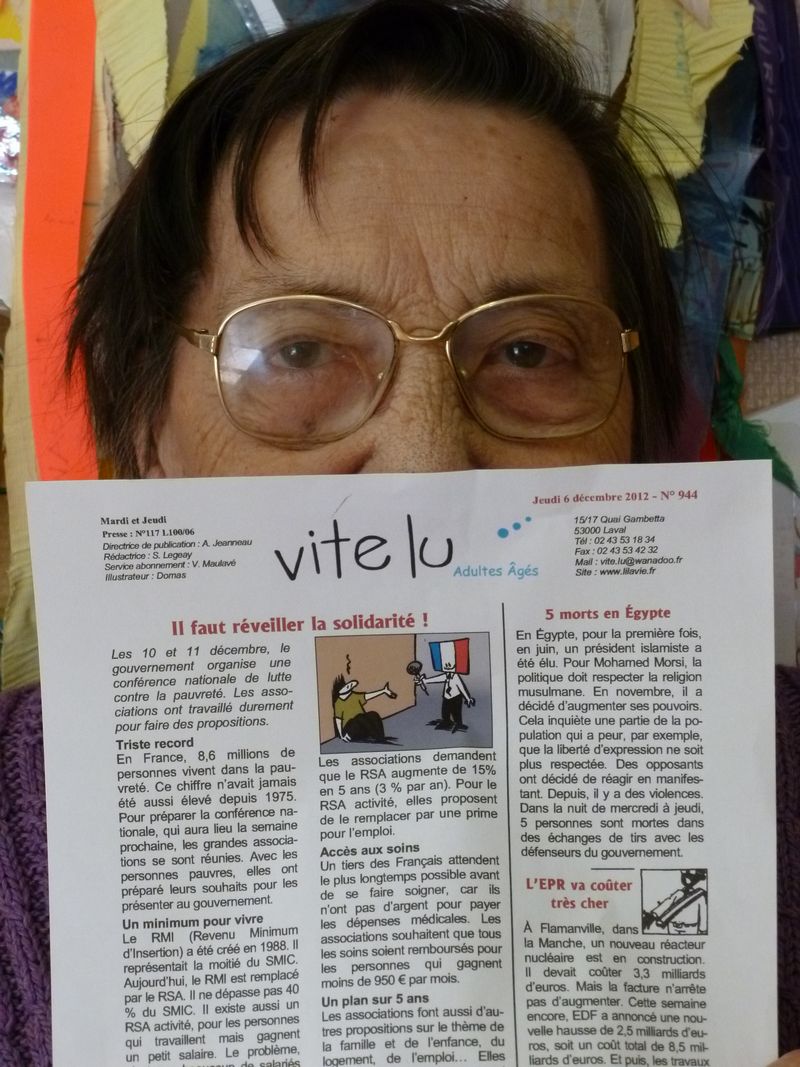 Jeudi 6 décembre 2012 - N° 944
Mardi et Jeudi
Presse : N°117 L100/06
Directrice de publication : A. Jeanneau
Rédactrice : S. Legeay
Service abonnement : V. Maulavé
Illustrateur : Domas
vite lu
Adultes Âgés
15/17 Quai Gambetta
53000 Laval
Tél : 02 43 53 18 34
Fax : 02 43 53 42 32
Mail : vite.lu@wanadoo.fr
Site : www.lilavie.fr
Il faut réveiller la solidarité !
Les 10 et 11 décembre, le
gouvernement organise une
conférence nationale de lutte
contre la pauvreté. Les asso-
ciations ont travaillé durement
pour faire des propositions.
Triste record
En France, 8,6 millions de
personnes vivent dans la pau-
vreté. Ce chiffre n'avait jamais
été aussi élevé depuis 1975.
Pour préparer la conférence na-
tionale, qui aura lieu la semaine
prochaine, les grandes associa-
tions se sont réunies. Avec les
personnes pauvres, elles ont
préparé leurs souhaits pour les
présenter au gouvernement.
Un minimum pour vivre
Le RMI (Revenu Minimum
d'Insertion) a été créé en 1988. Il
représentait la moitié du SMIC.
Aujourd'hui, le RMI est remplacé
par le RSA. Il ne dépasse pas 40
% du SMIC. Il existe aussi un
RSA activité, pour les personnes
qui travaillent mais gagnent
un petit salaire. Le problème,
de salariés
Les associations demandent
que le RSA augmente de 15%
en 5 ans (3 % par an). Pour le
RSA activité, elles proposent
de le remplacer par une prime
pour l'emploi.
Accès aux soins
Un tiers des Français attendent
le plus longtemps possible avant
de se faire soigner, car ils
n'ont pas d'argent pour payer
les dépenses médicales. Les
associations souhaitent que tous
les soins soient remboursés pour
les personnes qui gagnent
moins de 950 € par mois.
Un plan sur 5 ans
Les associations font aussi d'au-
tres propositions sur le thème de
la famille et de l'enfance, du
logement, de l'emploi... Elles
5 morts en Égypte
En Égypte, pour la première fois,
en juin, un président islamiste a
été élu. Pour Mohamed Morsi, la
politique doit respecter la religion
musulmane. En novembre, il a
décidé d'augmenter ses pouvoirs.
Cela inquiète une partie de la po-
pulation qui a peur, par exemple,
que la liberté d'expression ne soit
plus respectée. Des opposants
ont décidé de réagir en manifes-
tant. Depuis, il y a des violences.
Dans la nuit de mercredi à jeudi,
5 personnes sont mortes dans
des échanges de tirs avec les
défenseurs du gouvernement.
L'EPR va coûter
très cher
À Flamanville, dans
la Manche, un nouveau réacteur
nucléaire est en construction.
Il devait coûter 3,3 milliards
d'euros. Mais la facture n'arrête
pas d'augmenter. Cette semaine
encore, EDF a annoncé une nou-
velle hausse de 2,5 milliards d'eu-
ros, soit un coût total de 8,5 mil-
liards d'euros. Et puis, les travaux